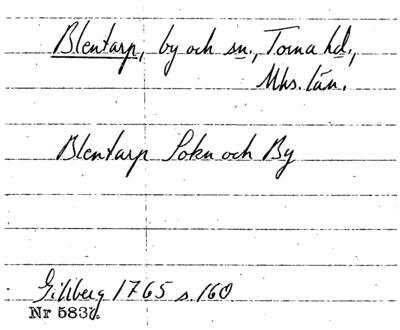 Blentarp, by och sn., Torna hd.,
Mhs. län.
Blentarp Sokn och By
Gillberg 1765 s. 160
Nr 5830